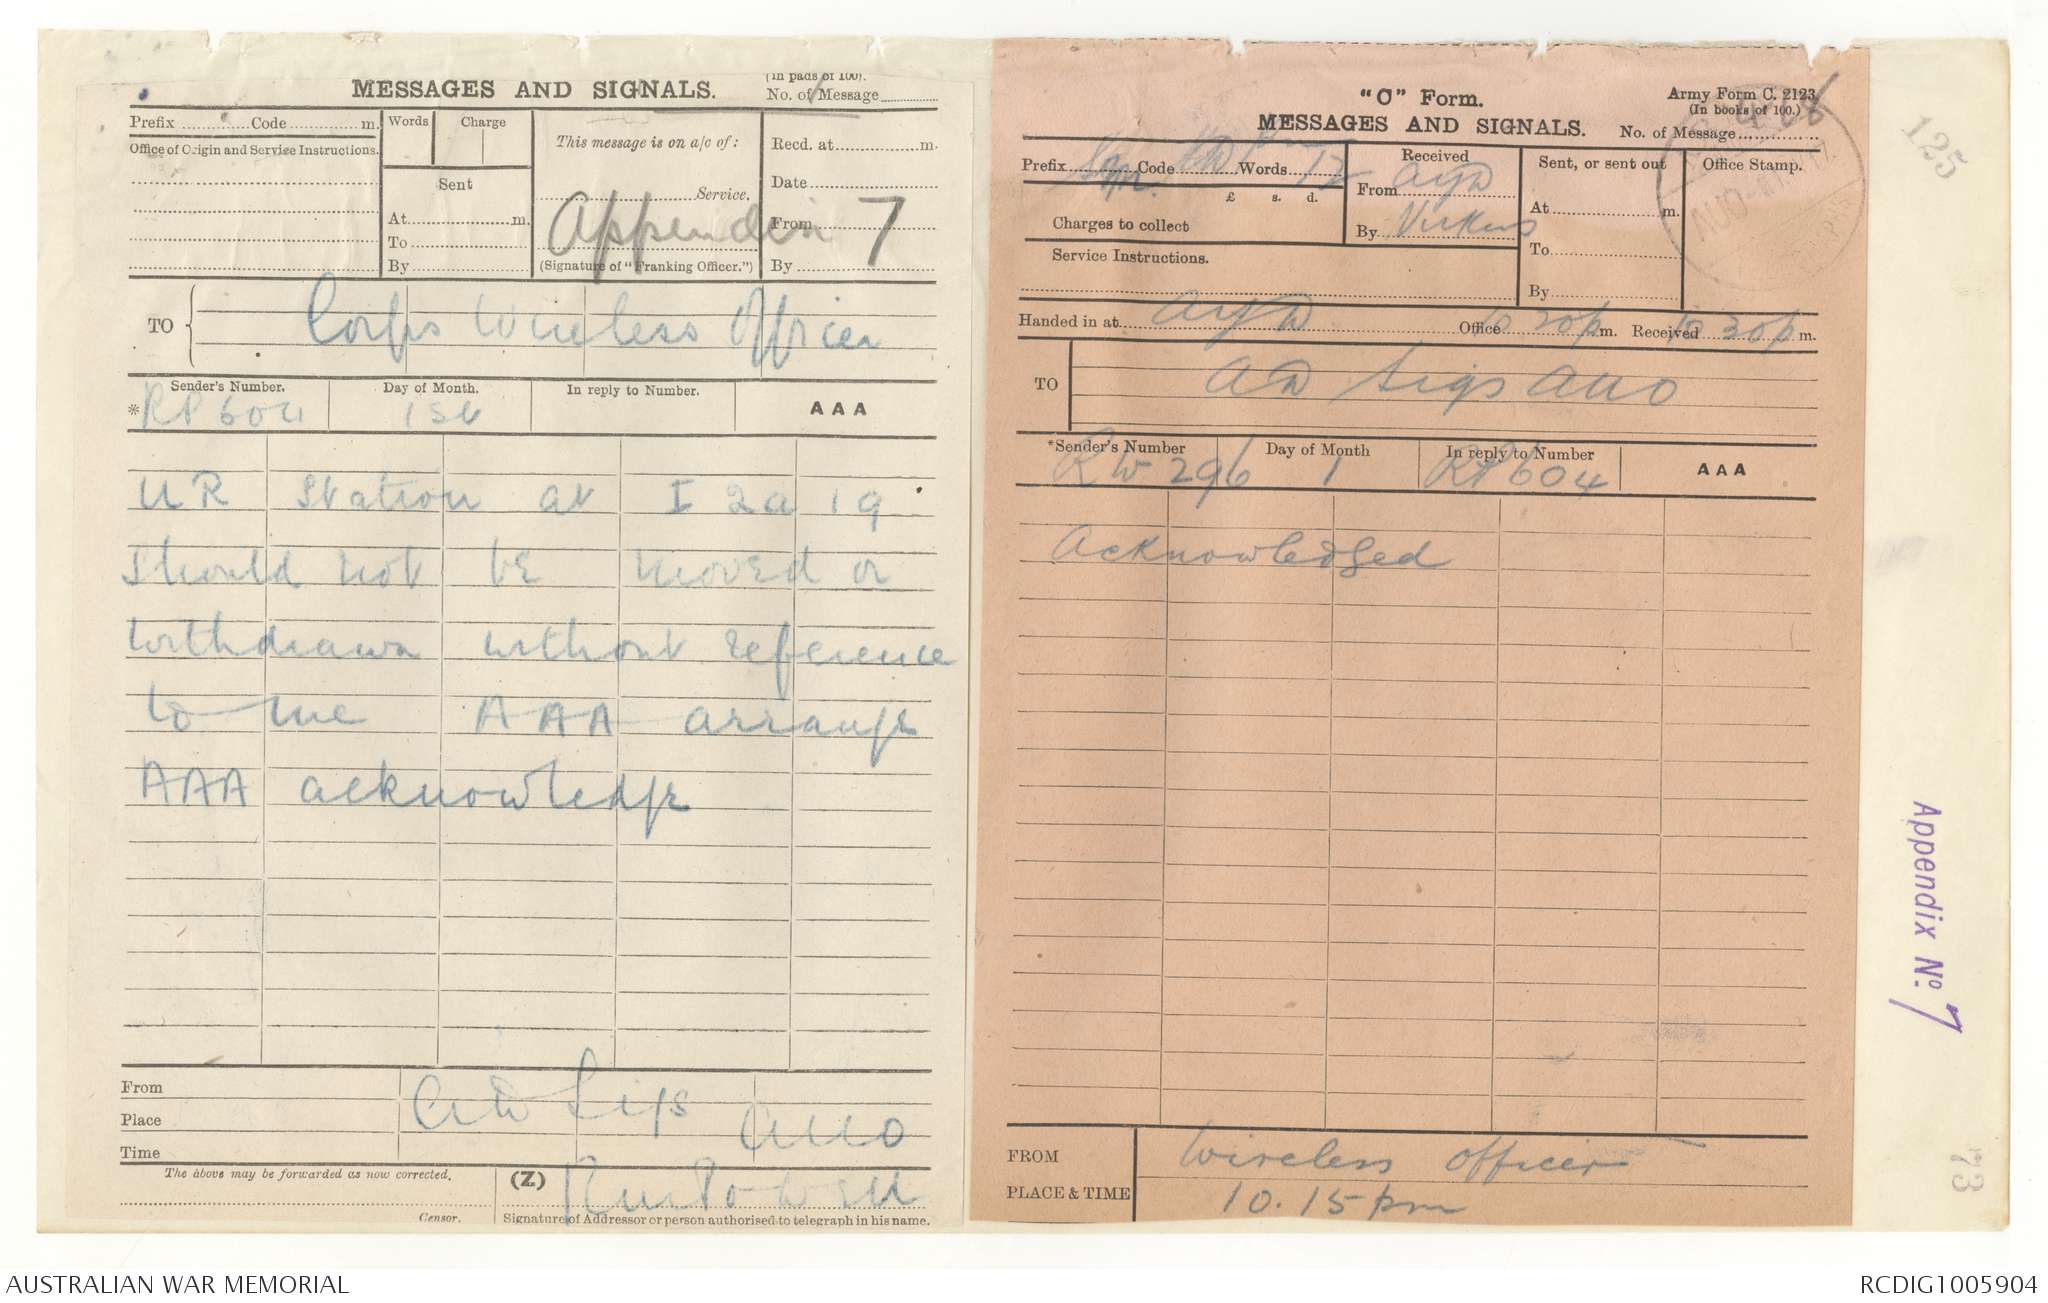 MESSAGES AND SIGNALS.
(In pads of 100).
No. of Message
Prefix Code m.
Words Charge
This message is on a/c of:
Recd. at m.
Office of Origin and Service Instructions.
Sent
Date
Service.
At m.
From
Appendix 7
To
By
(Signature of "Franking Officer.")
By
TO Corps Wireless Officer
Sender's Number. Day of Month. In reply to Number. AAA
* RP 604 1st
UR Station at I 2a 19
should not be moved or
withdrawn without reference
to me AAA arrange
AAA acknowledge
From
AD Sigs
Place
AUO
Time
The above may be forwarded as now corrected.
(Z)
Censor.
Signature of Addressor or person authorised to telegraph in his name.
"C" Form.
Army Form C. 2123.
(In books of 100.)
MESSAGES AND SIGNALS.
No. of Message
Prefix Sm Code Words 12
Received
From AYD
By
Sent, or sent out
At m.
To
By
Office Stamp.
£ s. d.
Charges to collect
Service Instructions.
Handed in at AYD Office 10 20p m. Received 10 30p m.
TO AD Sigs AUO
*Sender's Number Day of Month In reply to Number AAA
RW 296 1 RP 604
Acknowledged
FROM Wireless Officer
PLACE & TIME 10.15pm
125
Appendix No. 7
73
AUSTRALIAN WAR MEMORIAL
RCDIG1005904